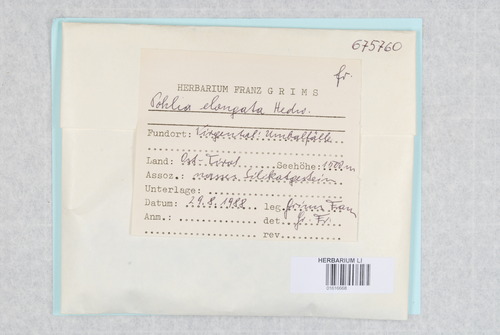 675760
fr.
HERBARIUM FRANZ GRIMS
Pohlia elongata Hedw.
Fundort: Virgental: Umbalfälle
Land: Ost-Tirol Seehöhe:
Assoz.: Silikatgestein
Unterlage:
Datum: 29.8.1988 leg. Grims Franz
Anm.: det. Gr. Fr.
rev.
HERBARIUM LI